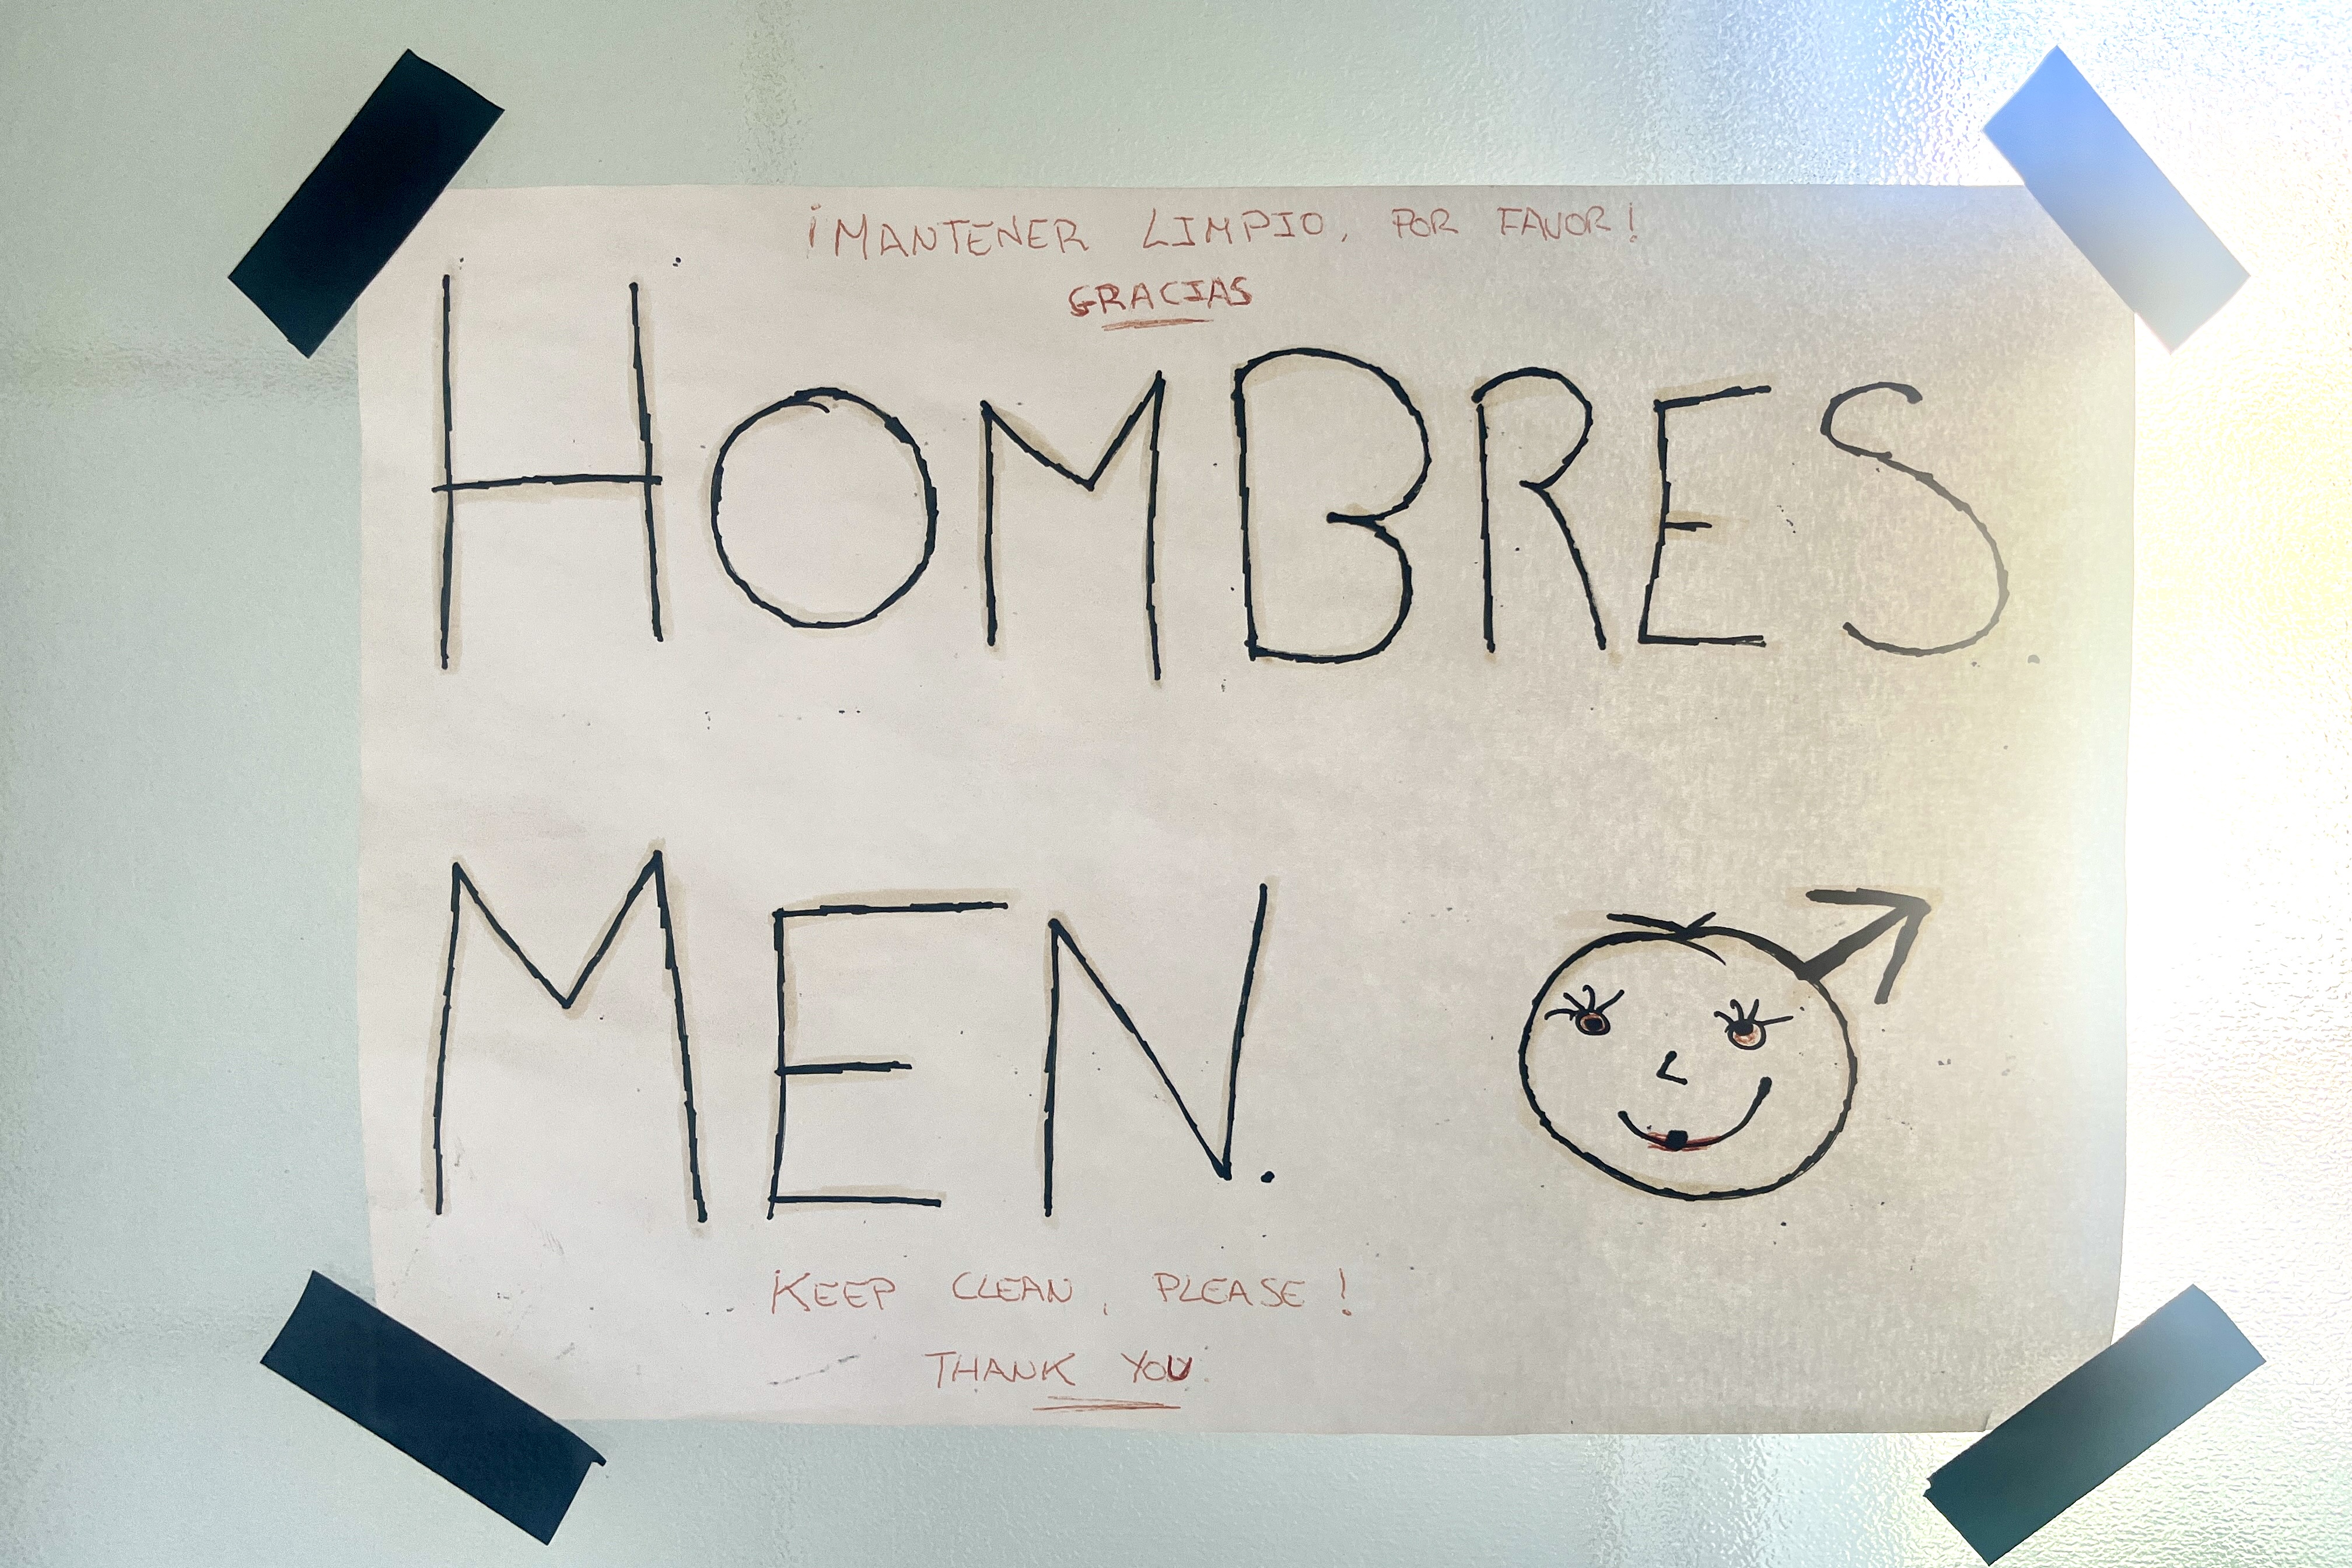 ¡MANTENER LIMPIO, POR FAVOR!
GRACIAS
HOMBRES.
MEN.
KEEP CLEAN, PLEASE!
THANK YOU